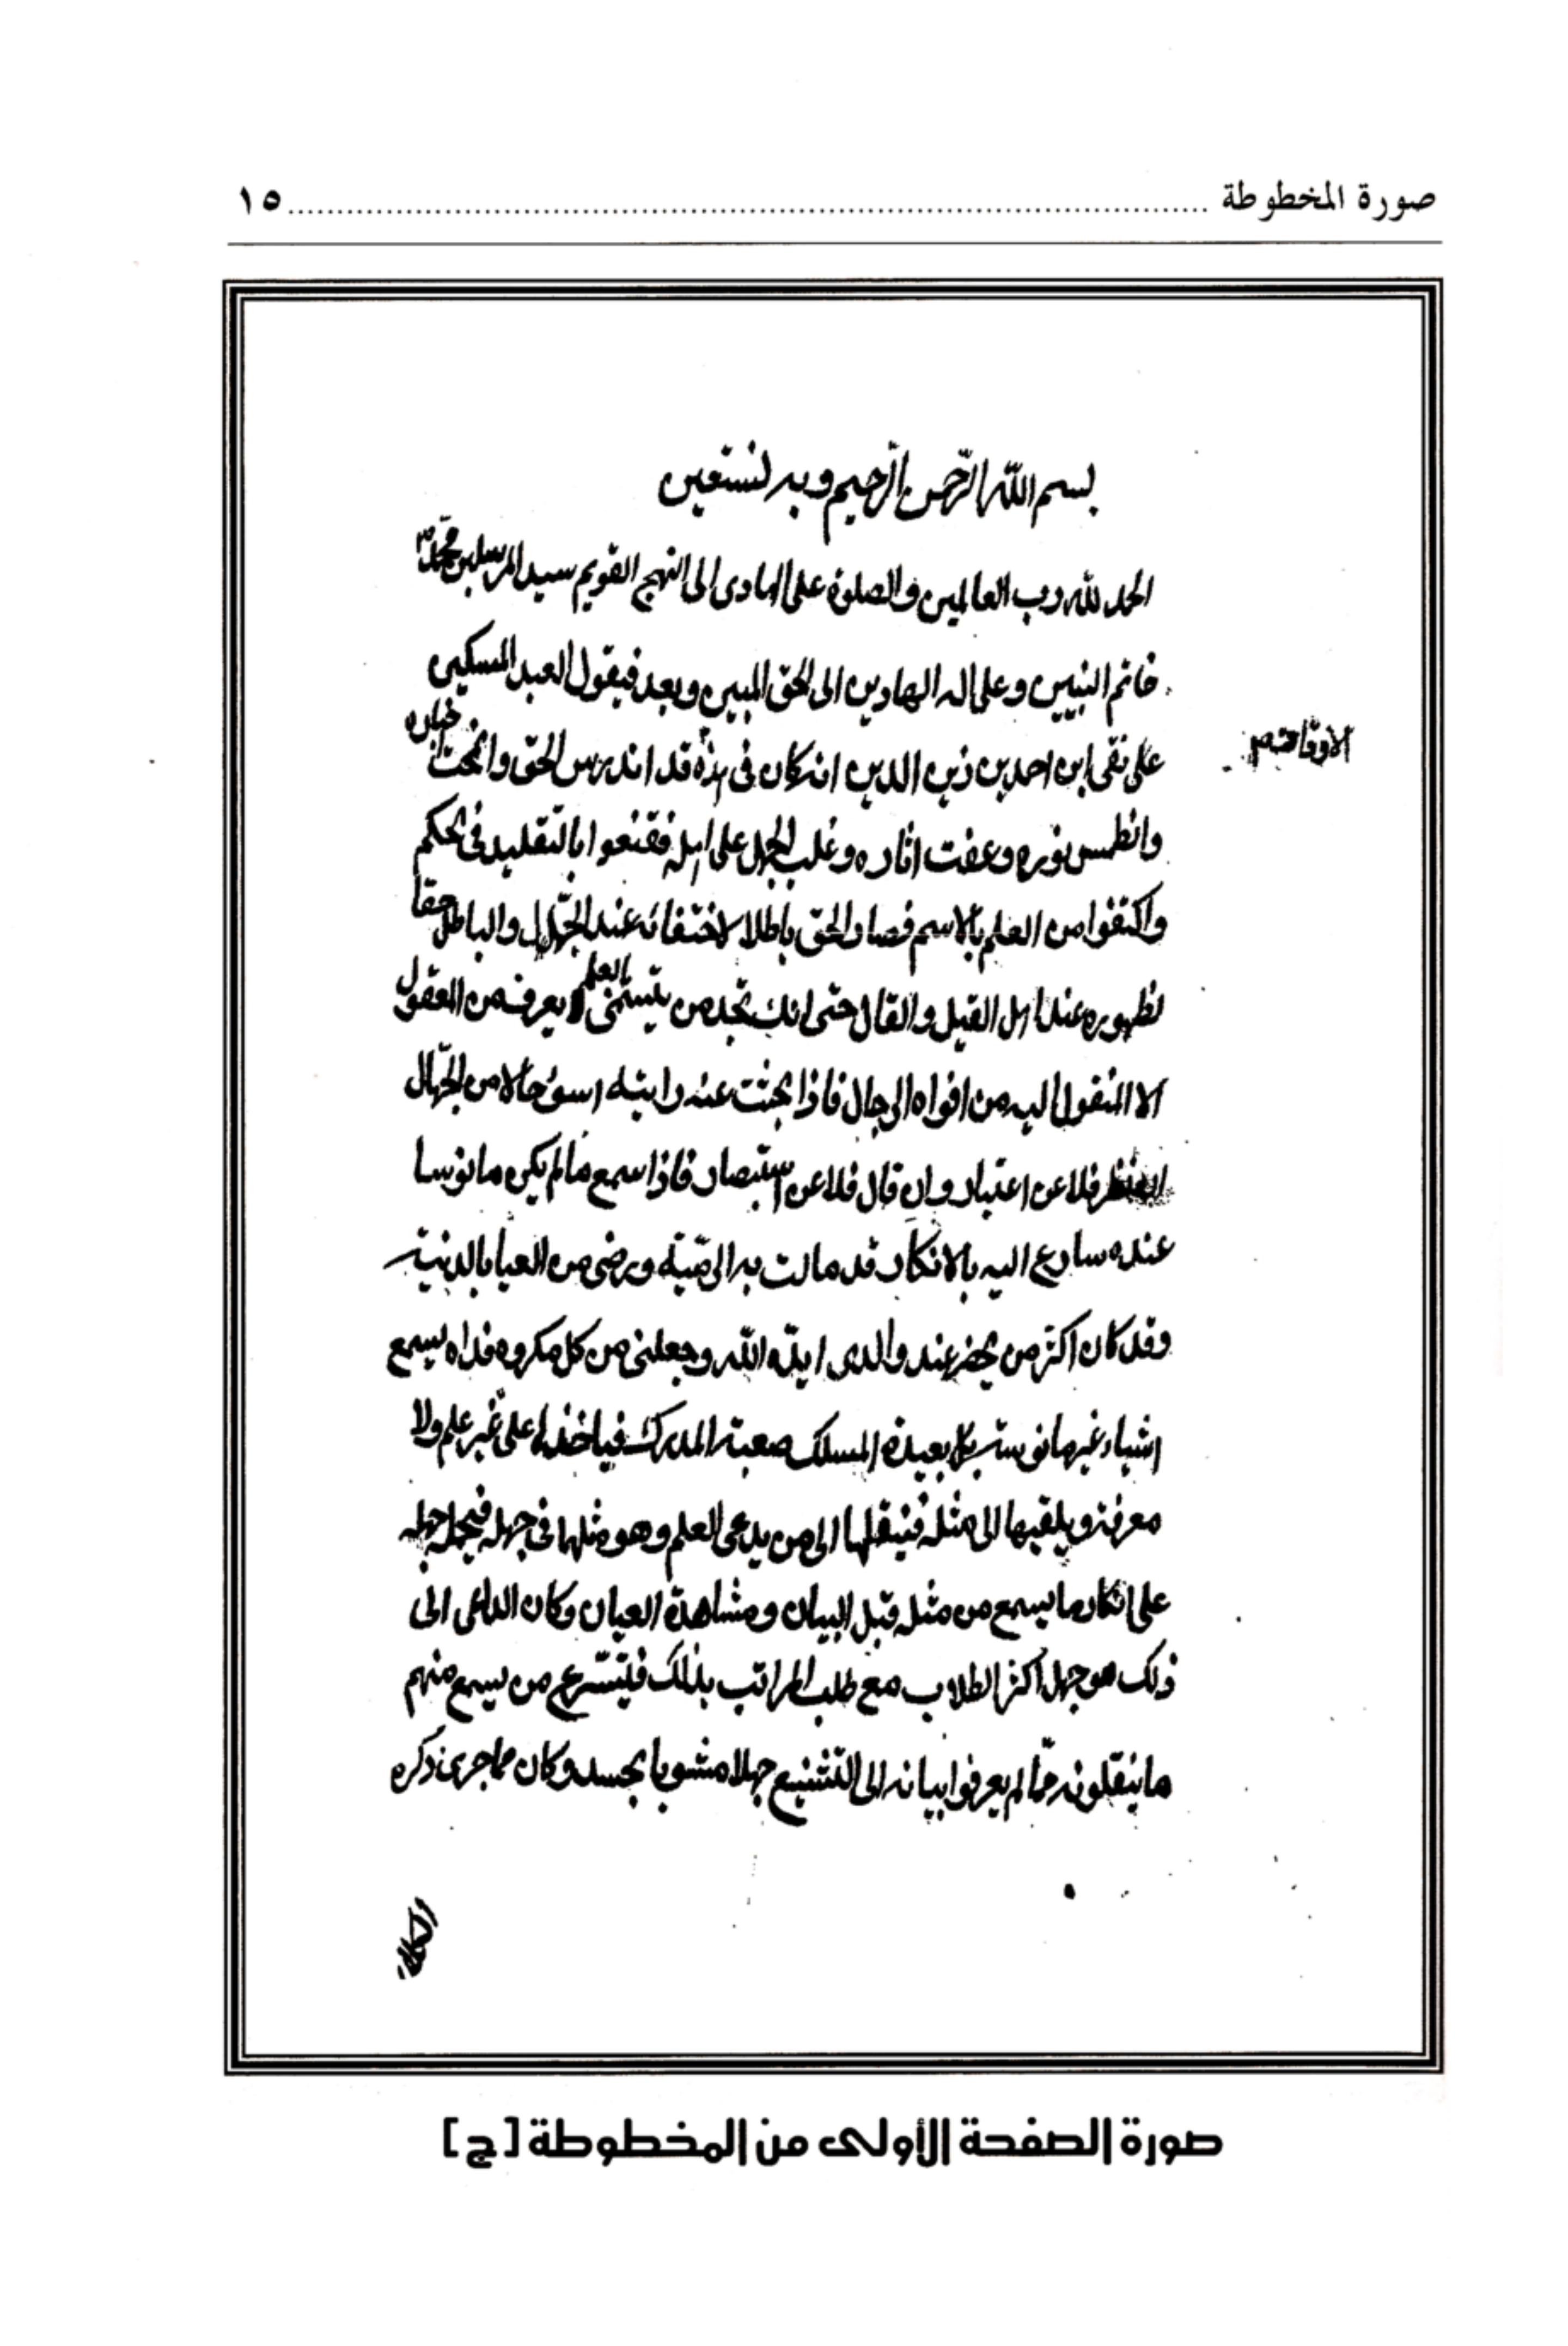 صورة المخطوطة ........ ١٥
بسم الله الرّحمن الرّحيم وبه نستعين
الحمد لله رب العالمين والصلوة على الهادى الى النهج القويم سيد المرسلين محمّد
خاتم النبيين وعلى اله الهادين الى الحق المبين وبعد فيقول العبد المسكين
على نقى ابن احمد بن زين الدين انه كان فى هذه قد اندرس الحق وانمحت اخباره
الاوقات
وانطمس نوره وعفت اثاره وغلب الجهل على اهله فقنعوا بالتقليد فى الحكم
واكتفوا من العلم بالاسم فصار الحق باطلا لاختفائه عند الجهّال والباطل حقا
لظهوره عند اهل القيل والقال حتى انك تجد من يتسمّى بالعلم لا يعرف من المعقول
الا المنقول اليه من افواه الرجال فاذا بحثت عنه رايته اسوء حالا من الجهّال
فلا عن اعتبار وان قال فلا عن استبصار فاذا سمع ما لم يكن مانوسا
عنده سارع اليه بالانكار قد مالت به ويرضى من العيا بالدنية
وقد كان اكثر من يحضر عند والدى ايدّه الله وجعلنى من كل مكروه فداه يسمع
اشياء غير مانوسة بل بعيدة المسلك صعبة المدرك فياخذها على غير علم ولا
معرفة ويلقيها الى مثله فينقلها الى من يدعى العلم وهو مثلهما فى جهله فيحمله جهله
على انكار ما يسمع من مثله قبل البيان ومشاهدة العيان وكان الداعى الى
ذلك هو جهل اكثر الطلاب مع طلب المراتب بذلك فيتسّرع من يسمع منهم
ما ينقلونه ممّا لم يعرفوا بيانه الى التشنيع جهلا مشوبا بحسد وكان مما جرى ذكره
صورة الصفحة الأولى من المخطوطة [ج]